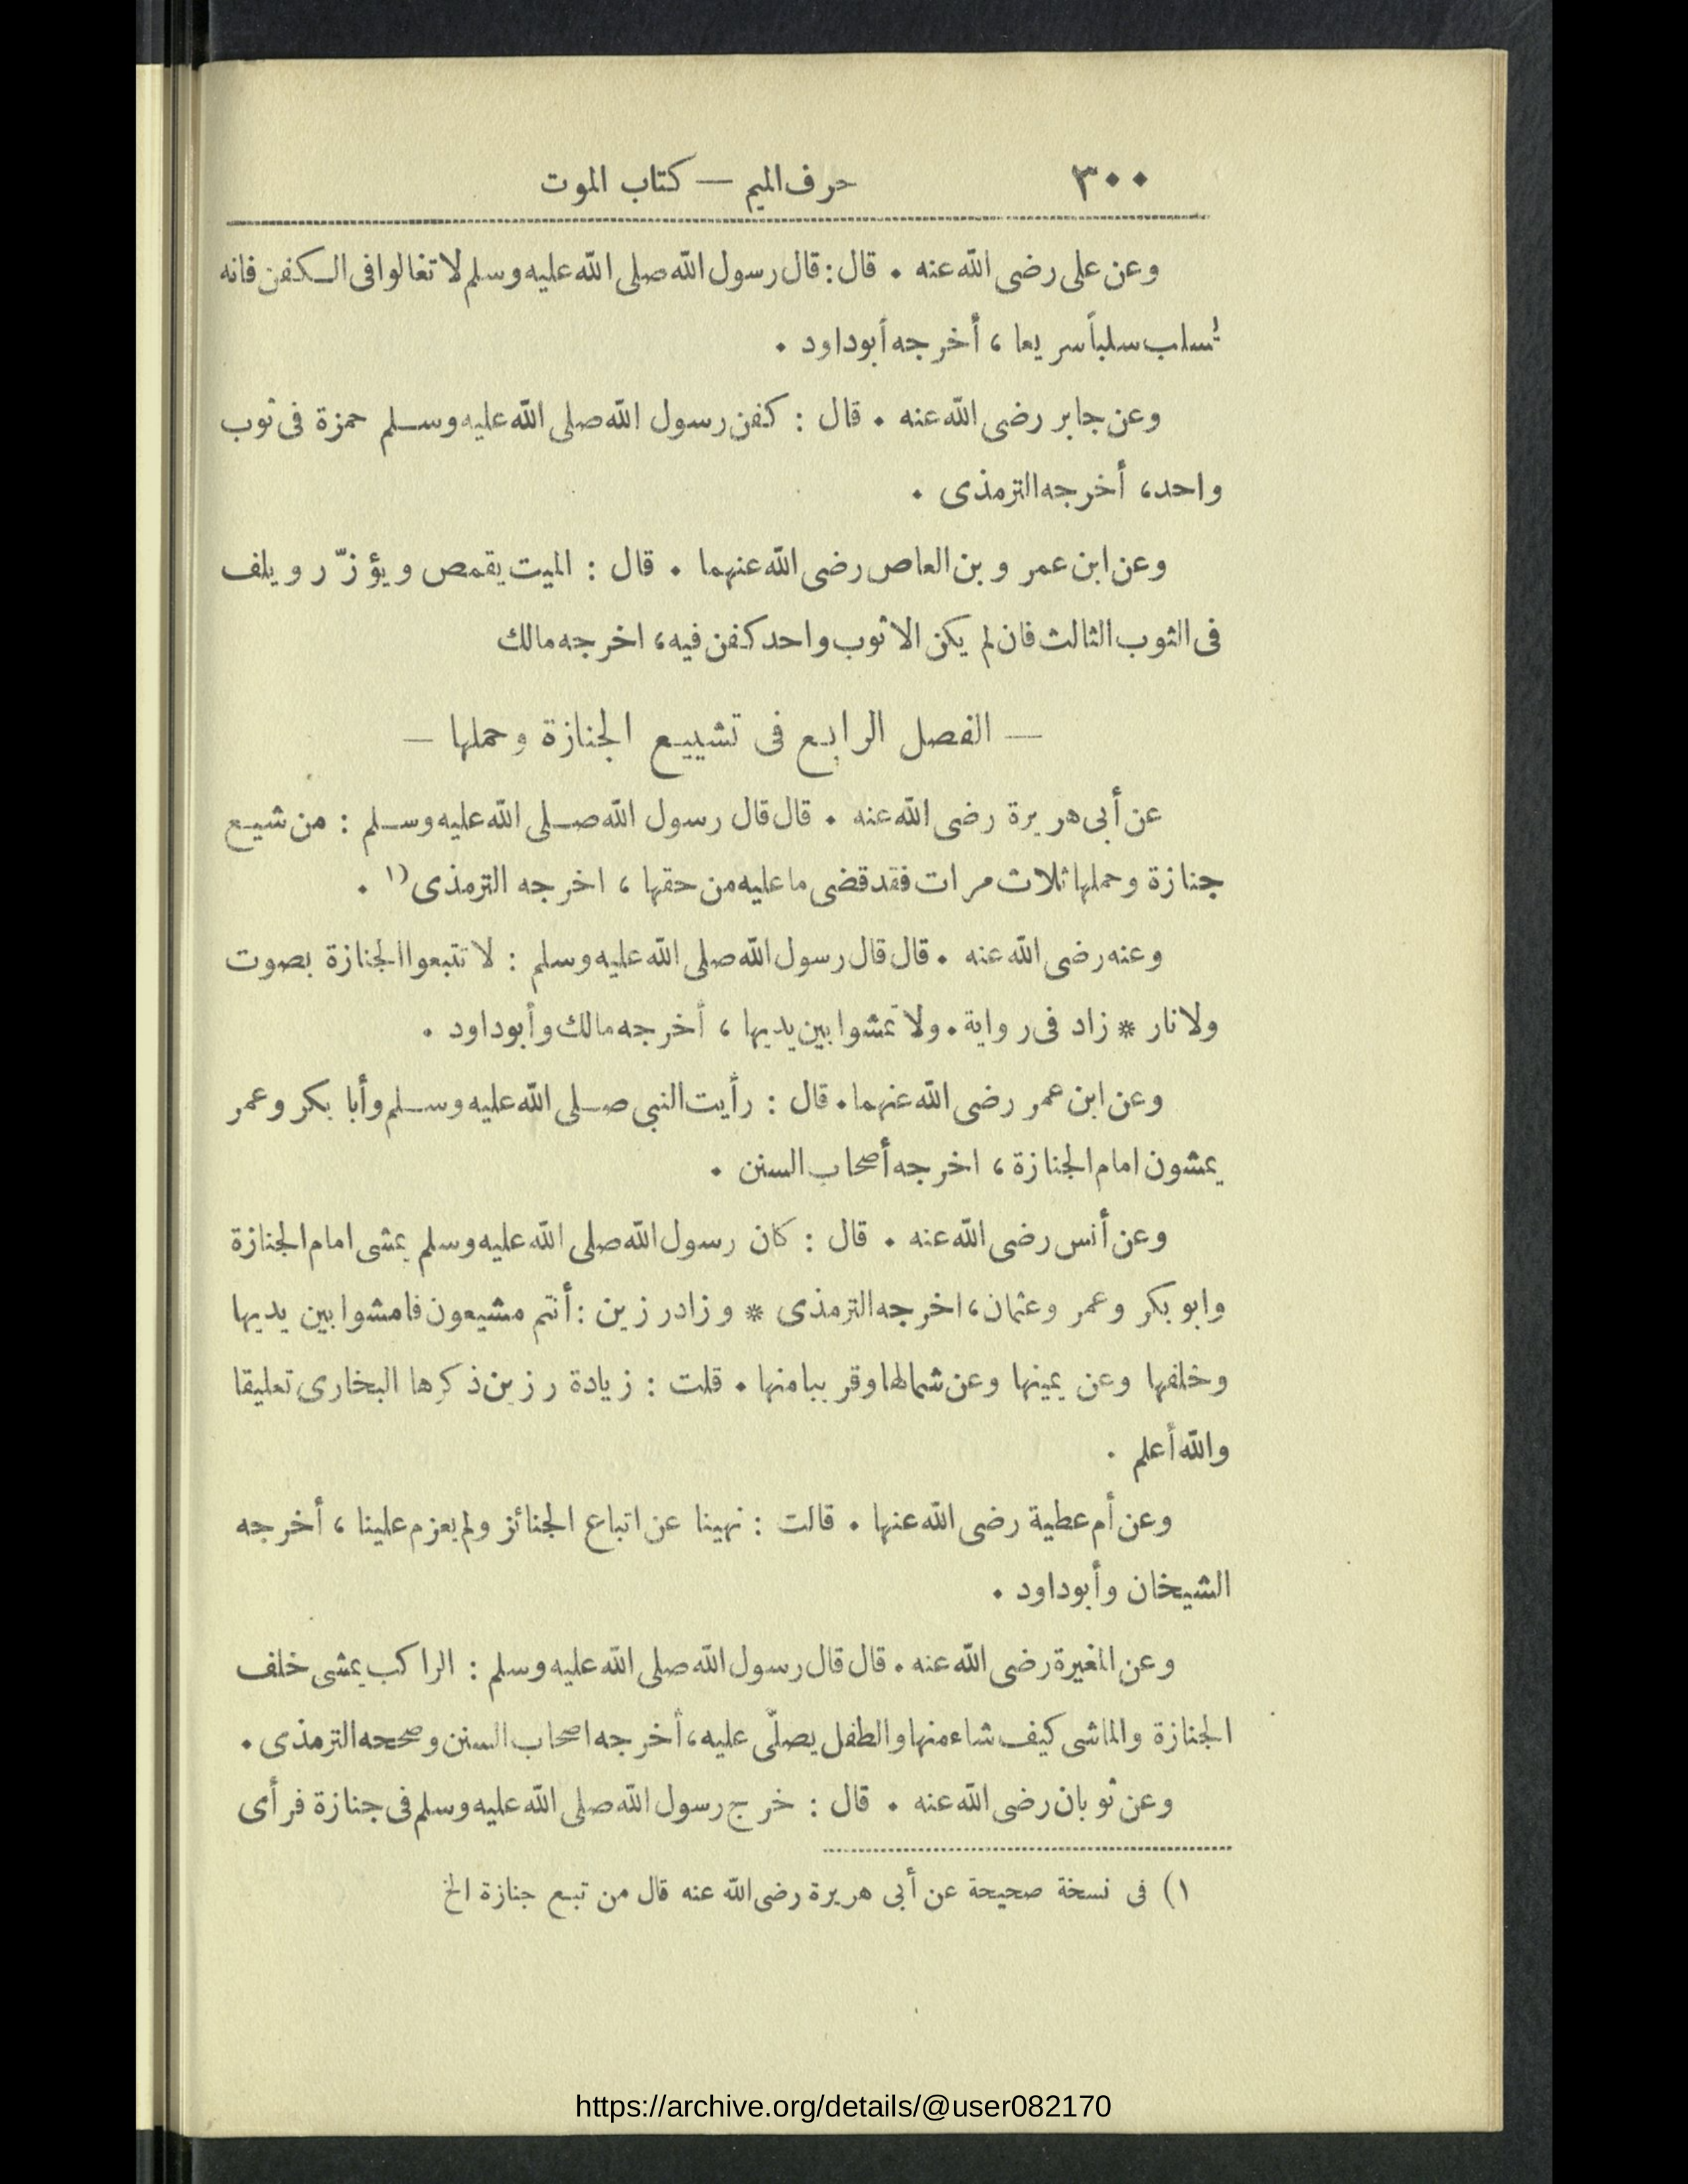 ٣٠٠ حرف الميم — كتاب الموت
وعن على رضى الله عنه . قال : قال رسول الله صلى الله عليه وسلم لا تغالوا فى الكفن فانه
يُسلب سلباً سريعا ، أخرجه أبو داود .
وعن جابر رضى الله عنه . قال : كفن رسول الله صلى الله عليه وسلم حمزة فى ثوب
واحد ، أخرجه الترمذى .
وعن ابن عمر و بن العاص رضى الله عنهما . قال : الميت يقمص و يؤزّر و يلف
فى الثوب الثالث فان لم يكن الا ثوب واحد كفن فيه ، اخرجه مالك
— الفصل الرابع فى تشييع الجنازة وحملها —
عن أبى هريرة رضى الله عنه . قال قال رسول الله صلى الله عليه وسلم : من شيع
جنازة وحملها ثلاث مرات فقد قضى ما عليه من حقها ، اخرجه الترمذى ١) .
وعنه رضى الله عنه . قال قال رسول الله صلى الله عليه وسلم : لا تتبعوا الجنازة بصوت
ولا نار * زاد فى رواية . ولا تمشوا بين يديها ، أخرجه مالك وأبو داود .
وعن ابن عمر رضى الله عنهما . قال : رأيت النبى صلى الله عليه وسلم وأبا بكر وعمر
يمشون امام الجنازة ، اخرجه أصحاب السنن .
وعن أنس رضى الله عنه . قال : كان رسول الله صلى الله عليه وسلم يمشى امام الجنازة
وابو بكر وعمر وعثمان ، اخرجه الترمذى * وزاد رزين : أنتم مشيعون فامشوا بين يديها
وخلفها وعن يمينها وعن شمالها وقريبا منها . قلت : زيادة رزين ذكرها البخارى تعليقا
والله أعلم .
وعن أم عطية رضى الله عنها . قالت : نهينا عن اتباع الجنائز ولم يعزم علينا ، أخرجه
الشيخان وأبو داود .
وعن المغيرة رضى الله عنه . قال قال رسول الله صلى الله عليه وسلم : الراكب يمشى خلف
الجنازة والماشى كيف شاء منها والطفل يصلّى عليه ، أخرجه اصحاب السنن وصححه الترمذى .
وعن ثوبان رضى الله عنه . قال : خرج رسول الله صلى الله عليه وسلم فى جنازة فرأى
١) فى نسخة صحيحة عن أبى هريرة رضى الله عنه قال من تبع جنازة الخ
https://archive.org/details/@user082170